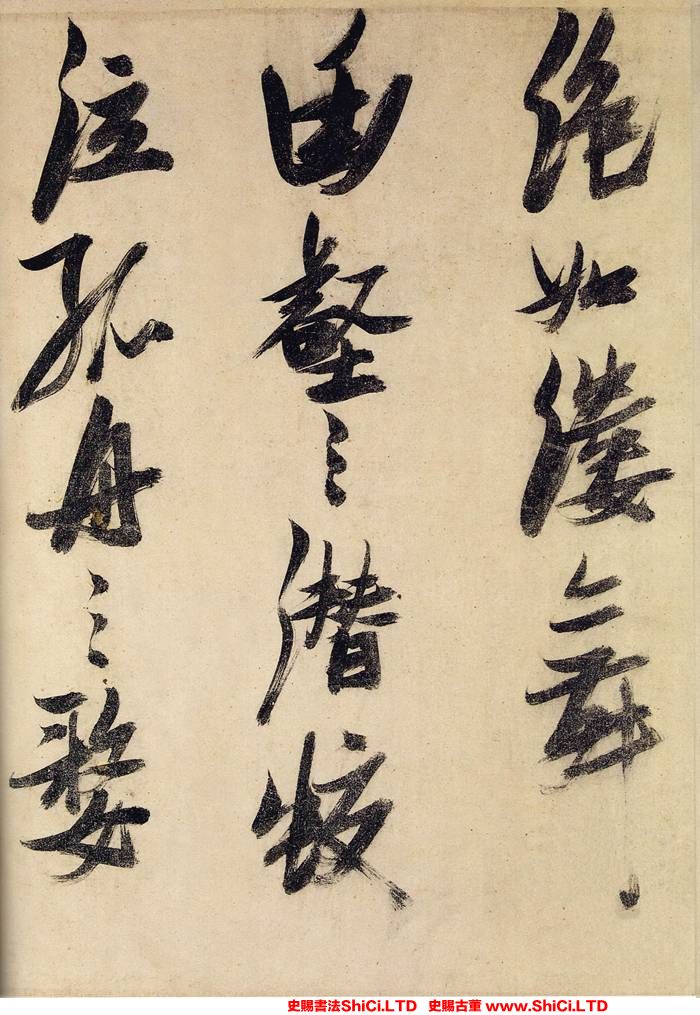 絕如縷舞
幽壑之潛蛟
泣孤舟之嫠
史賜書法ShiCi.LTD 史賜古董 www.ShiCi.LTD